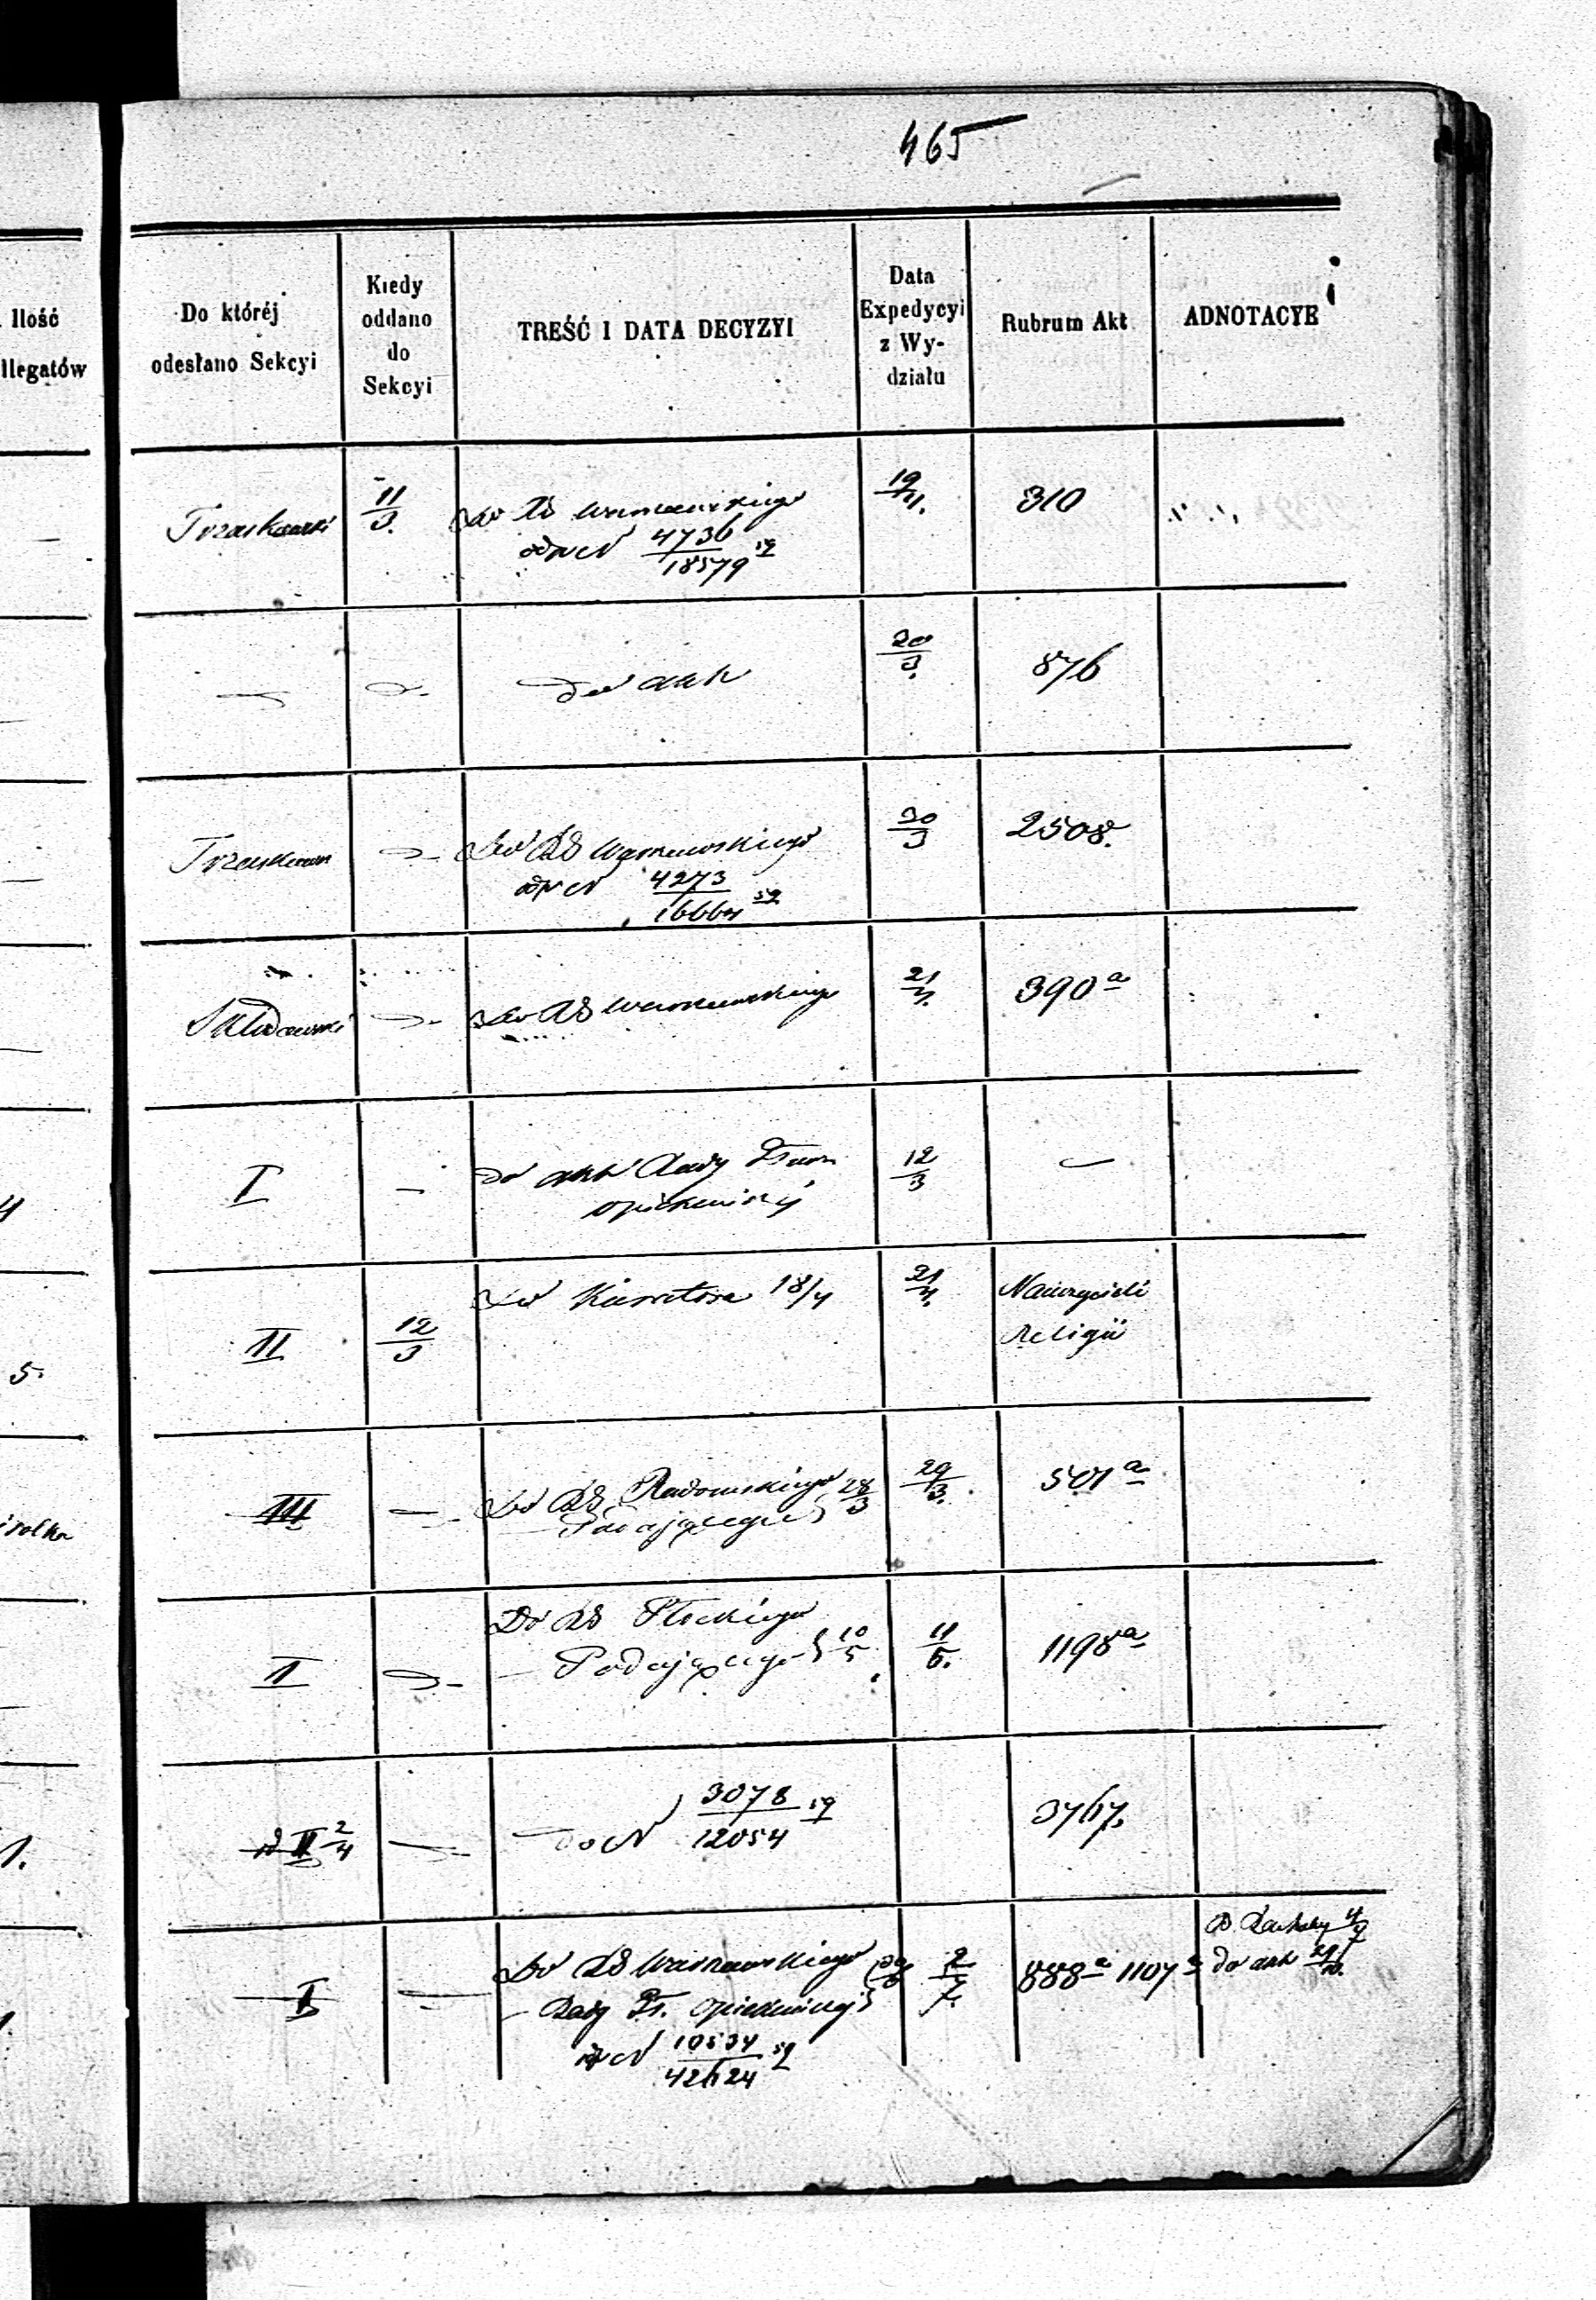 465
Ilość
llegatów
Do któréj
odesłano Sekcyi
Kiedy
oddano
do
Sekcyi
TREŚĆ I DATA DECYZYI
Data
Expedycyi
z Wy-
działu
Rubrum Akt
ADNOTACYE
Trzaskowski
11/3.
Do RS Warszawskiego
odp N 4736/18579 59
19/4.
310
do akt
20/3.
876
Trzaskowski
Do RS Warszawskiego
odp N 4273/16664 59
30/3
2508.
Skłodowski
Do RS Warszawskiego
21/4.
390 a
I
do akt Rady
opiekuńczéj
12/3
4
II
12/3
Do Kuratora 18/4
21/4.
Nauczycieli
Religii
5.
III
Do RS Radomskiego 28/3
Podającego
29/3.
501 a
I
Do RS Płockiego
Podającego 10/5
11/5.
1198 a
II 2/4
do N 3078/12054 59
3767.
1.
I
Do RS Warszawskiego
Rady opiekuńczej
odp N 10534/42624 59
2/7.
888 a 1107 a
do akt